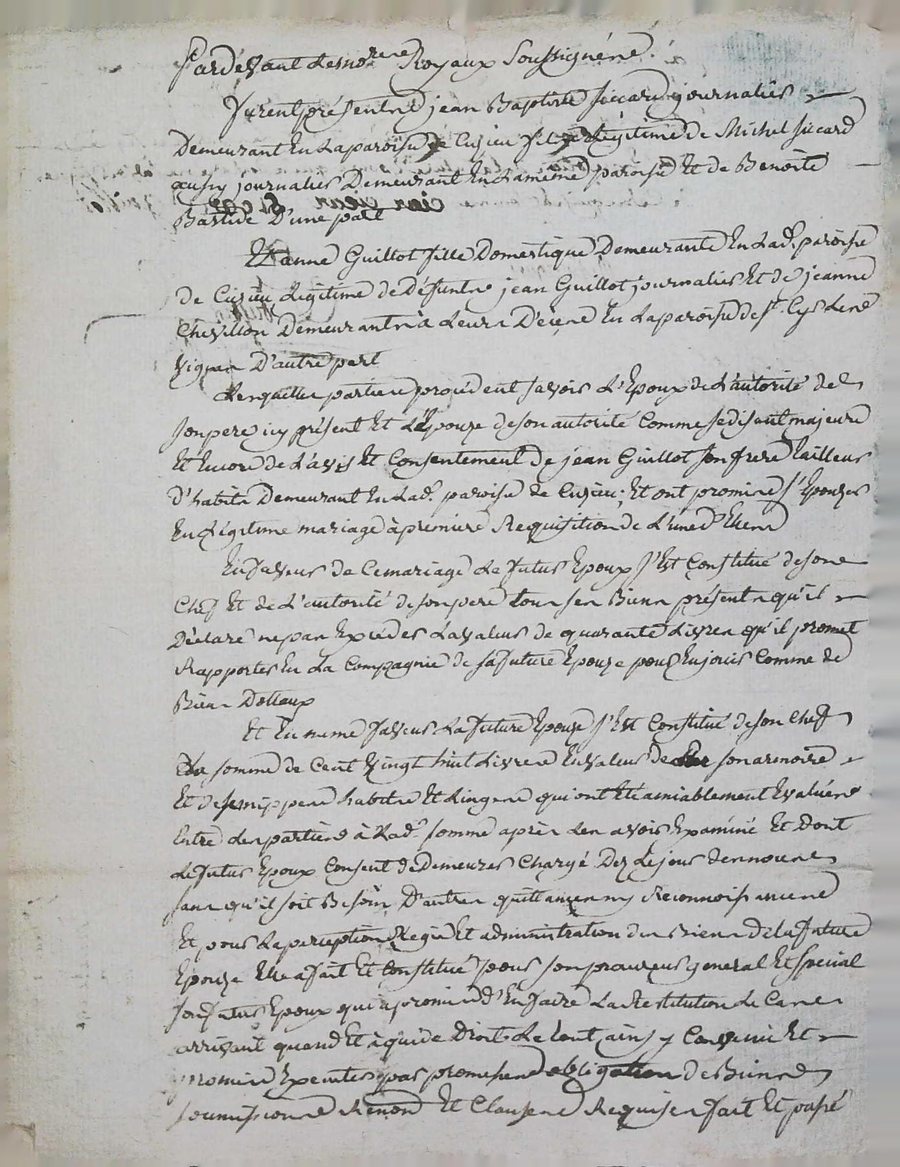 Pardevant Les no.res Royaux Soussignés.
Furent présents jean Baptiste Siccard journalier
Demeurant En La paroisse de Cuzieu fils Legitime de Michel Siccard
aussy journalier Demeurant En La même paroisse Et de Benoite
Bastide D'une part
Et anne Guillot fille Domestique Demeurante En Lad. paroisse
de Cuzieu Legitime de Défunts jean Guillot journalier Et de jeanne
Chevillon Demeurants à Leurs Décés En La paroisse de St. Cyr Les
Vignes D'autre part
Lesquelles parties procédent savoir L'Epoux de L'autorité de
son pere icy présent Et L'Epouze de son autorité Comme se disant majeure
Et Encore de L'avis Et Consentement de jean Guillot son frere Tailleur
d'habits Demeurant En Lad. paroisse de Cuzieu; Et ont promis s'Epouzer
En Légitime mariage à premiere Requisition de L'une d'Elles
En faveur de Ce mariage Le futur Epoux s'Est Constitué de son
Chef Et de L'autorité de son pere tous ses Biens présents qu'il
Déclare ne pas Exceder La valeur de quarante Livres qu'il promet
Rapporter En La Compagnie de sa future Epouze pour En jouir Comme de
Biens Dottaux
Et En meme faveur La future Epouze s'Est Constitué de son Chef
La somme de Cent Vingt huit Livres En valeur de son armoire
Et de ses nippes habits Et Linges qui ont Eté amiablement Evalués
Entre Les parties à Lad. somme après Les avoir Examiné Et Dont
Le futur Epoux Consent de Demeurer Chargé Dez Le jour des noces
sans qu'il soit Besoin D'autres quittances ny Reconnoissances
Et pour La perception Regie Et administration des Biens de La future
Epouze Elle a fait Et Constitué pour son procureur general Et special
son futur Epoux qui a promis d'En faire La Restitution Le Cas
arrivant quand Et à qui de Droit. Le tout ainsy Convenu Et
promis Executer par promesses obligation de Biens
soumissions Renon. Et Clauses Requises fait Et passé